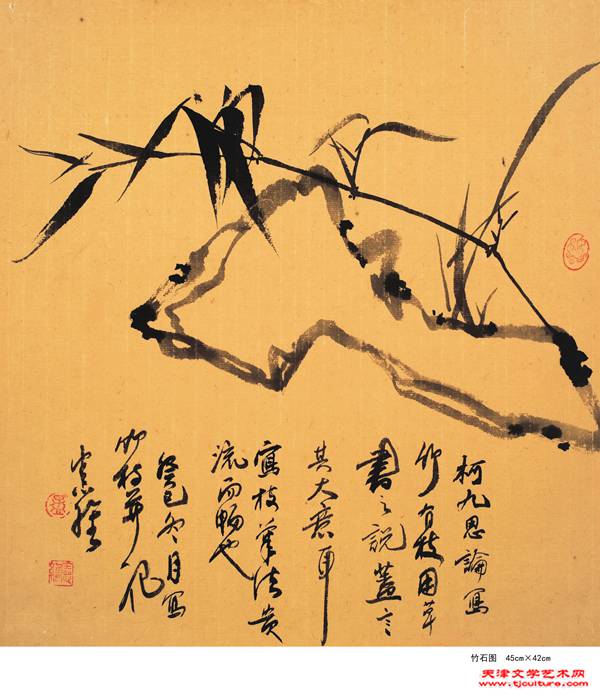 柯九思論寫
竹有枝用草
書之說蓋言
其大意耳
寫枝筆法貴
流而暢也
癸巳冬月寫
竹枝並記
竹石图 45cm×42cm
天津文学艺术网
www.tjculture.com